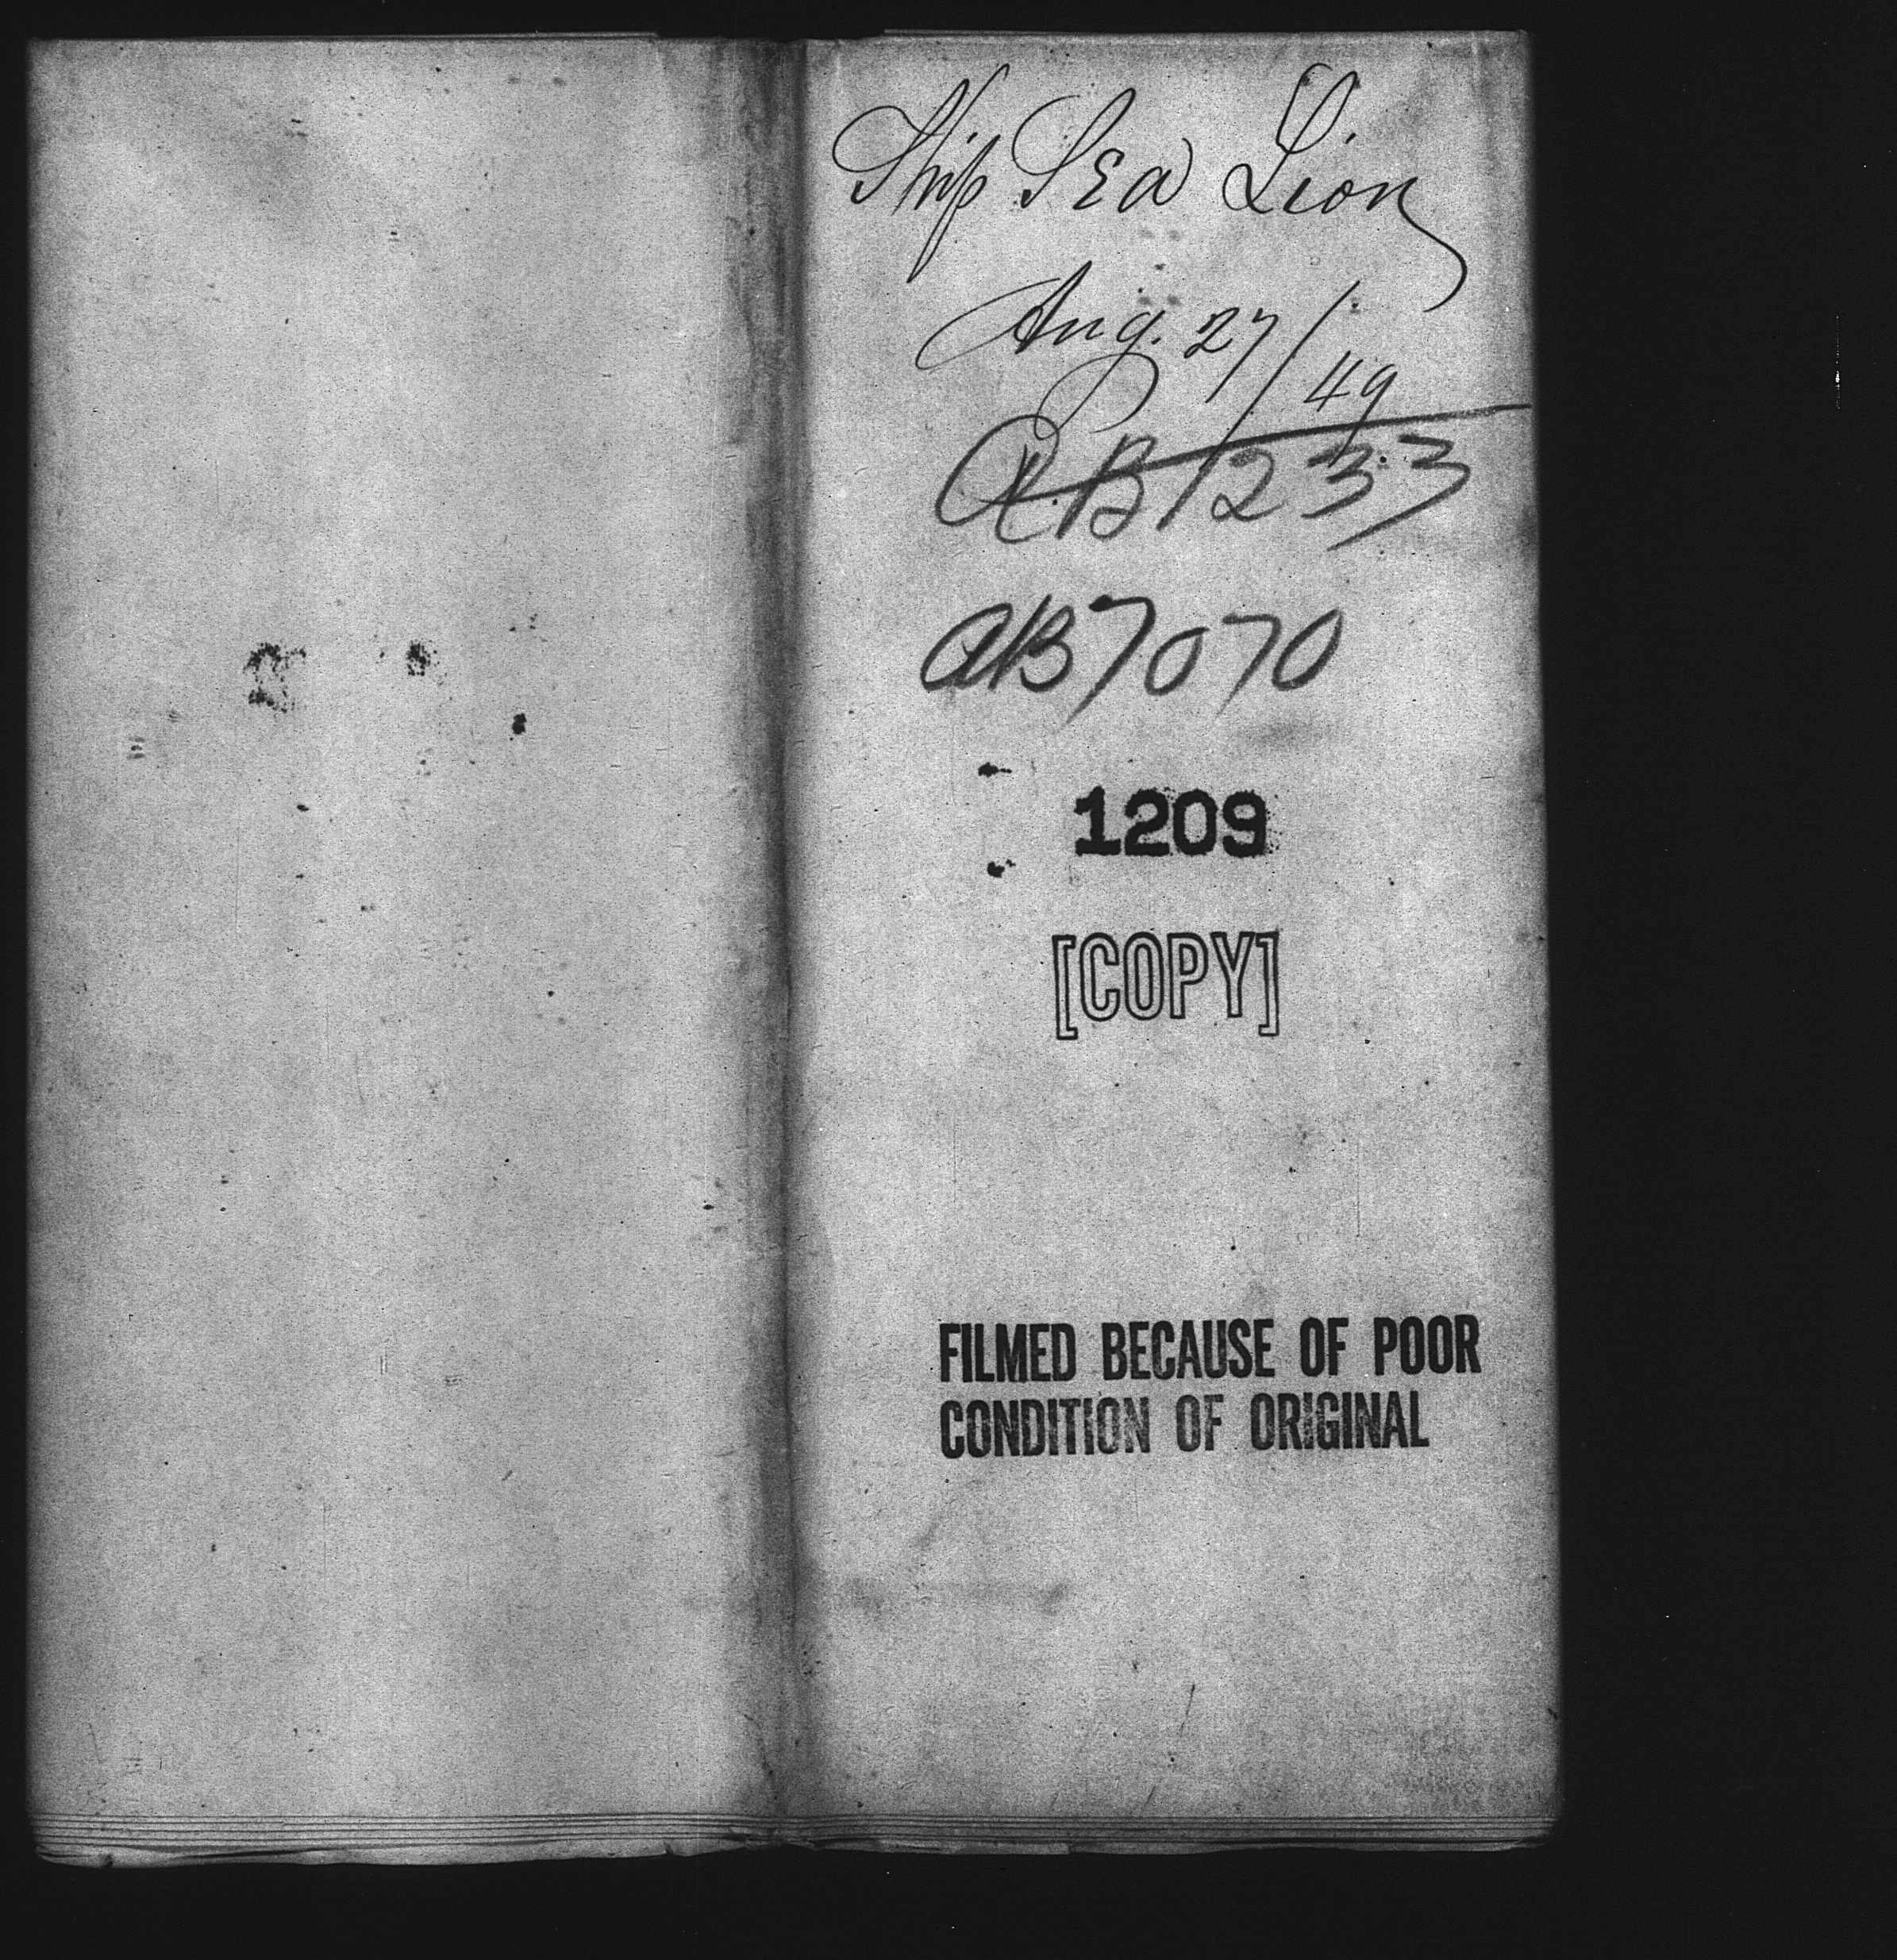 Ship Sea Lion
Aug. 27/49
AB1233
AB7070
1209
[COPY]
FILMED BECAUSE OF POOR
CONDITION OF ORIGINAL